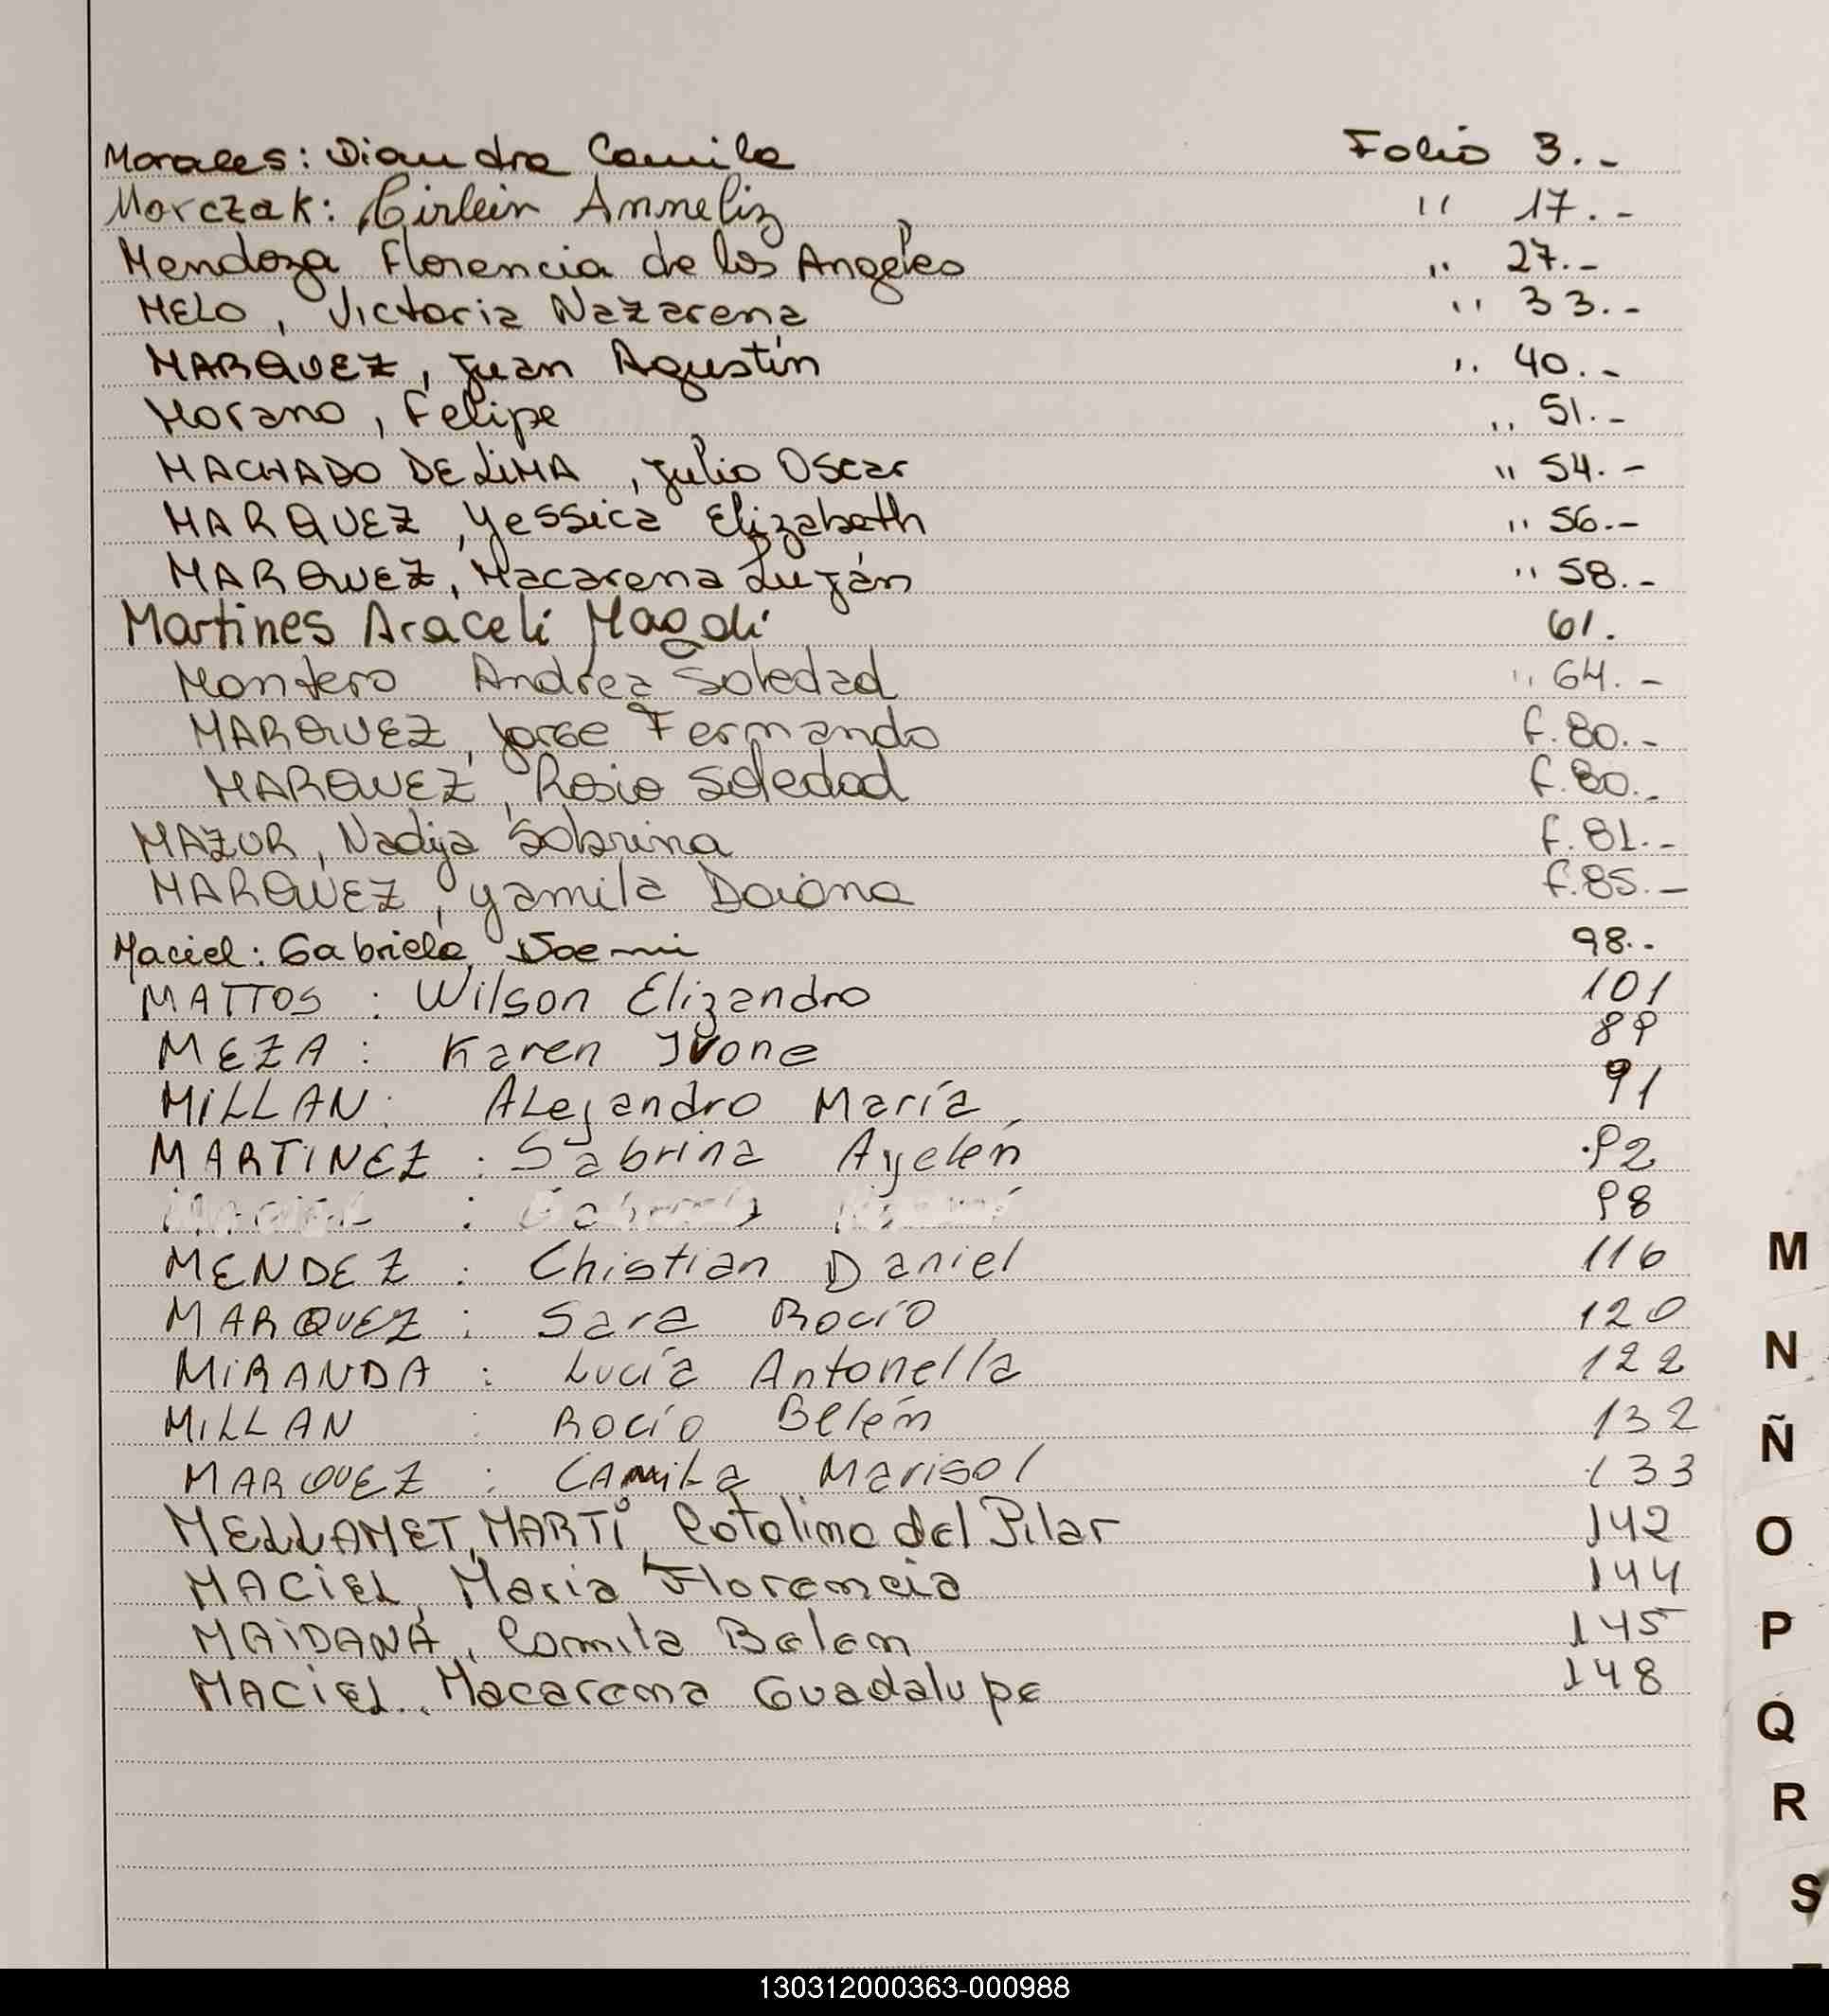 Morales: Diandra Camila Folio 3.-
Morczak: Cirlein Anneliz " 17.-
Mendoza Florencia de los Angeles " 27.-
MELO, Victoria Nazarena " 33.-
MARQUEZ, Juan Agustín " 40.-
Morano, Felipe " 51.-
MACHADO DE LIMA, Julio Oscar " 54.-
MARQUEZ, Yessica Elizabeth " 56.-
MARQUEZ, Macarena Luján " 58.-
Martines Araceli Magali 61.
Montero Andrea Soledad " 64.-
MARQUEZ, Jorge Fernando f.80.-
MARQUEZ, Rosio Soledad f.80.-
MAZUR, Nadija Sabrina f.81.-
MARQUEZ, Yamila Daiana f.85.-
Maciel: Gabriela Noemi 98..
MATTOS : Wilson Elizandro 101
MEZA : Karen Ivone 89
MILLAN : ALejandro María 91
MARTINEZ : Sabrina Ayelén 92
: 98
MENDEZ : Chistian Daniel 116
MARQUEZ : Sara Rocío 120
MIRANDA : Lucía Antonella 122
MILLAN : Rocío Belén 132
MARQUEZ : CAmiLa Marisol 133
MELLAMET, MARTI, Catalina del Pilar 142
MACIEL, Maria Florencia 144
MAIDANA, Camila Belen 145
MACIEL, Macarena Guadalupe 148
M
N
Ñ
O
P
Q
R
S
130312000363-000988